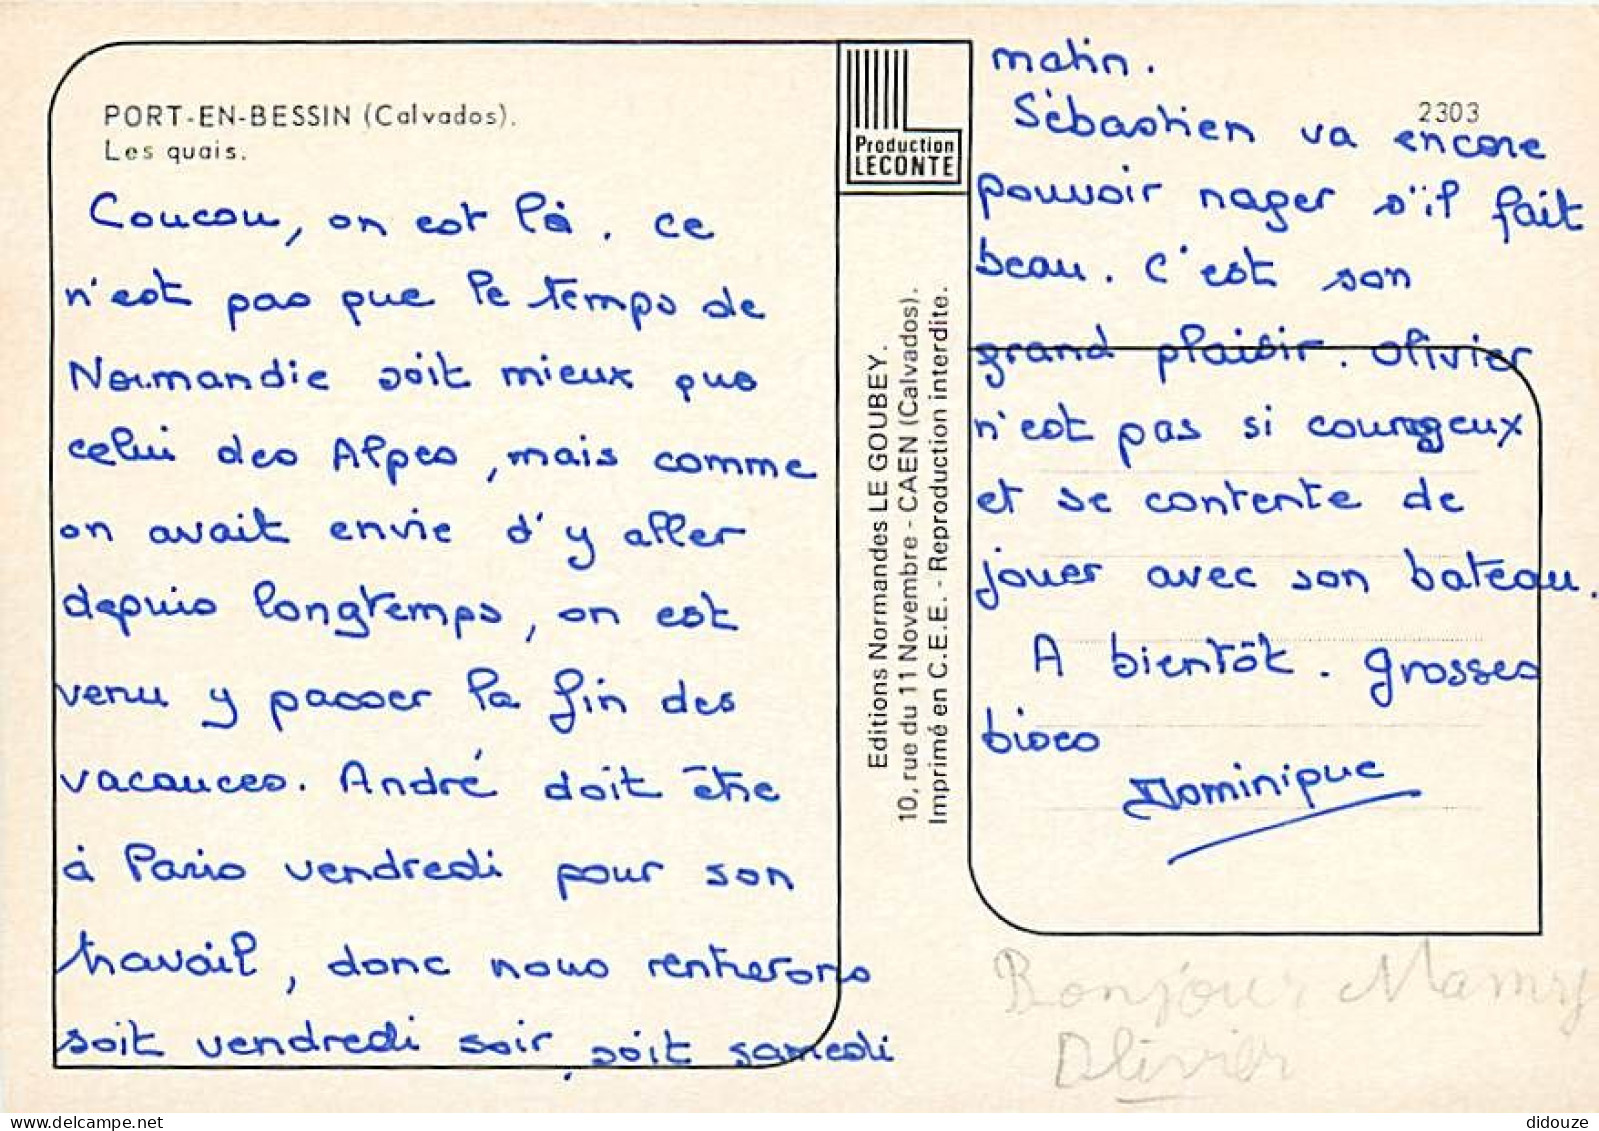 PORT-EN-BESSIN (Calvados).
Les quais.
Coucou, on est là. ce
n'est pas que le temps de
Normandie soit mieux que
celui des Alpes, mais comme
on avait envie d'y aller
depuis longtemps, on est
venu y passer la fin des
vacances. André doit être
à Paris vendredi pour son
travail, donc nous rentrerons
soit vendredi soir, soit samedi
Production
LECONTE
Editions Normandes LE GOUBEY.
10, rue du 11 Novembre - CAEN (Calvados).
Imprimé en C.E.E. - Reproduction interdite.
2303
matin.
Sébastien va encore
pouvoir nager s'il fait
beau. C'est son
grand plaisir. Olivier
n'est pas si courageux
et se contente de
jouer avec son bateau.
A bientôt. Grosses
bises
Dominique
Bonjour Mamy
Olivier
didouze